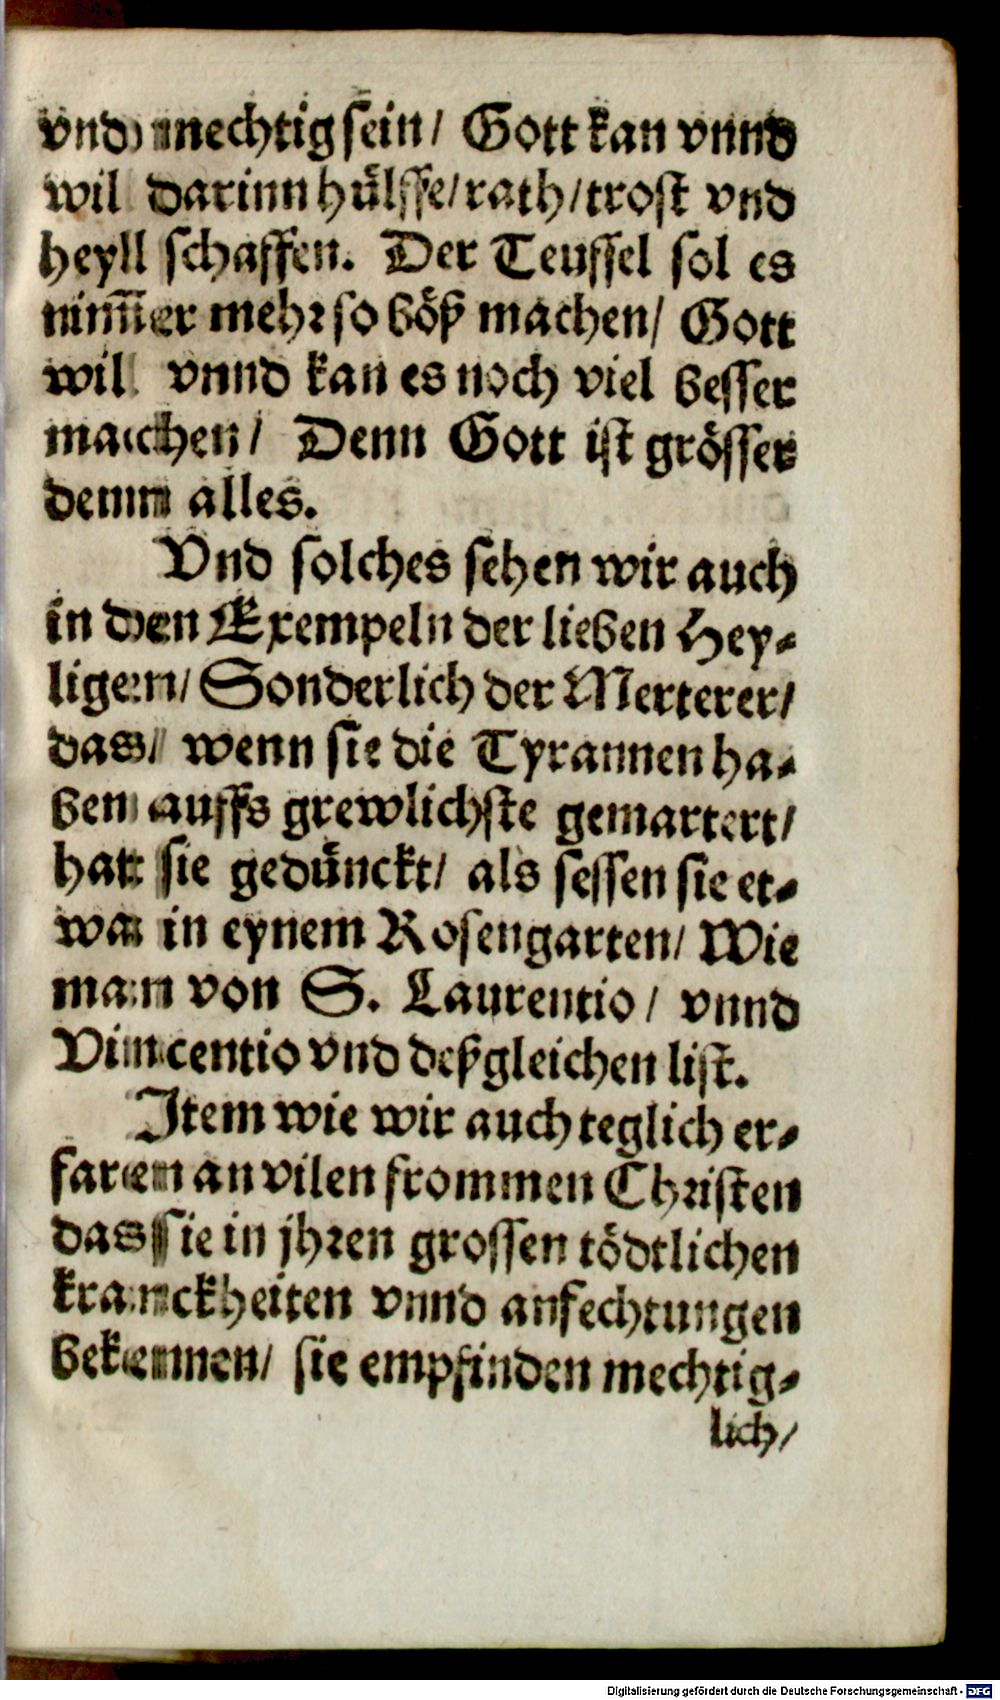 vnd mechtig sein/ Gott kan vnnd
wil darinn hülffe/rath/trost vnd
heyll schaffen. Der Teuffel sol es
nim̅er mehr so böß machen/ Gott
wil vnnd kan es noch viel besser
machen/ Denn Gott ist grösser
denn alles.
Vnd solches sehen wir auch
in den Exempeln der lieben Hey-
ligen/ Sonderlich der Merterer/
das/ wenn sie die Tyrannen ha-
ben auffs grewlichste gemartert/
hat sie gedünckt/ als sessen sie et-
wa in eynem Rosengarten/ Wie
man von S. Laurentio/ vnnd
Vincentio vnd deßgleichen list.
Item wie wir auch teglich er-
faren an vilen frommen Christen
das sie in jhren grossen tödtlichen
kranckheiten vnnd anfechtungen
bekennen/ sie empfinden mechtig-
lich/
Digitalisierung gefördert durch die Deutsche Forschungsgemeinschaft - DFG